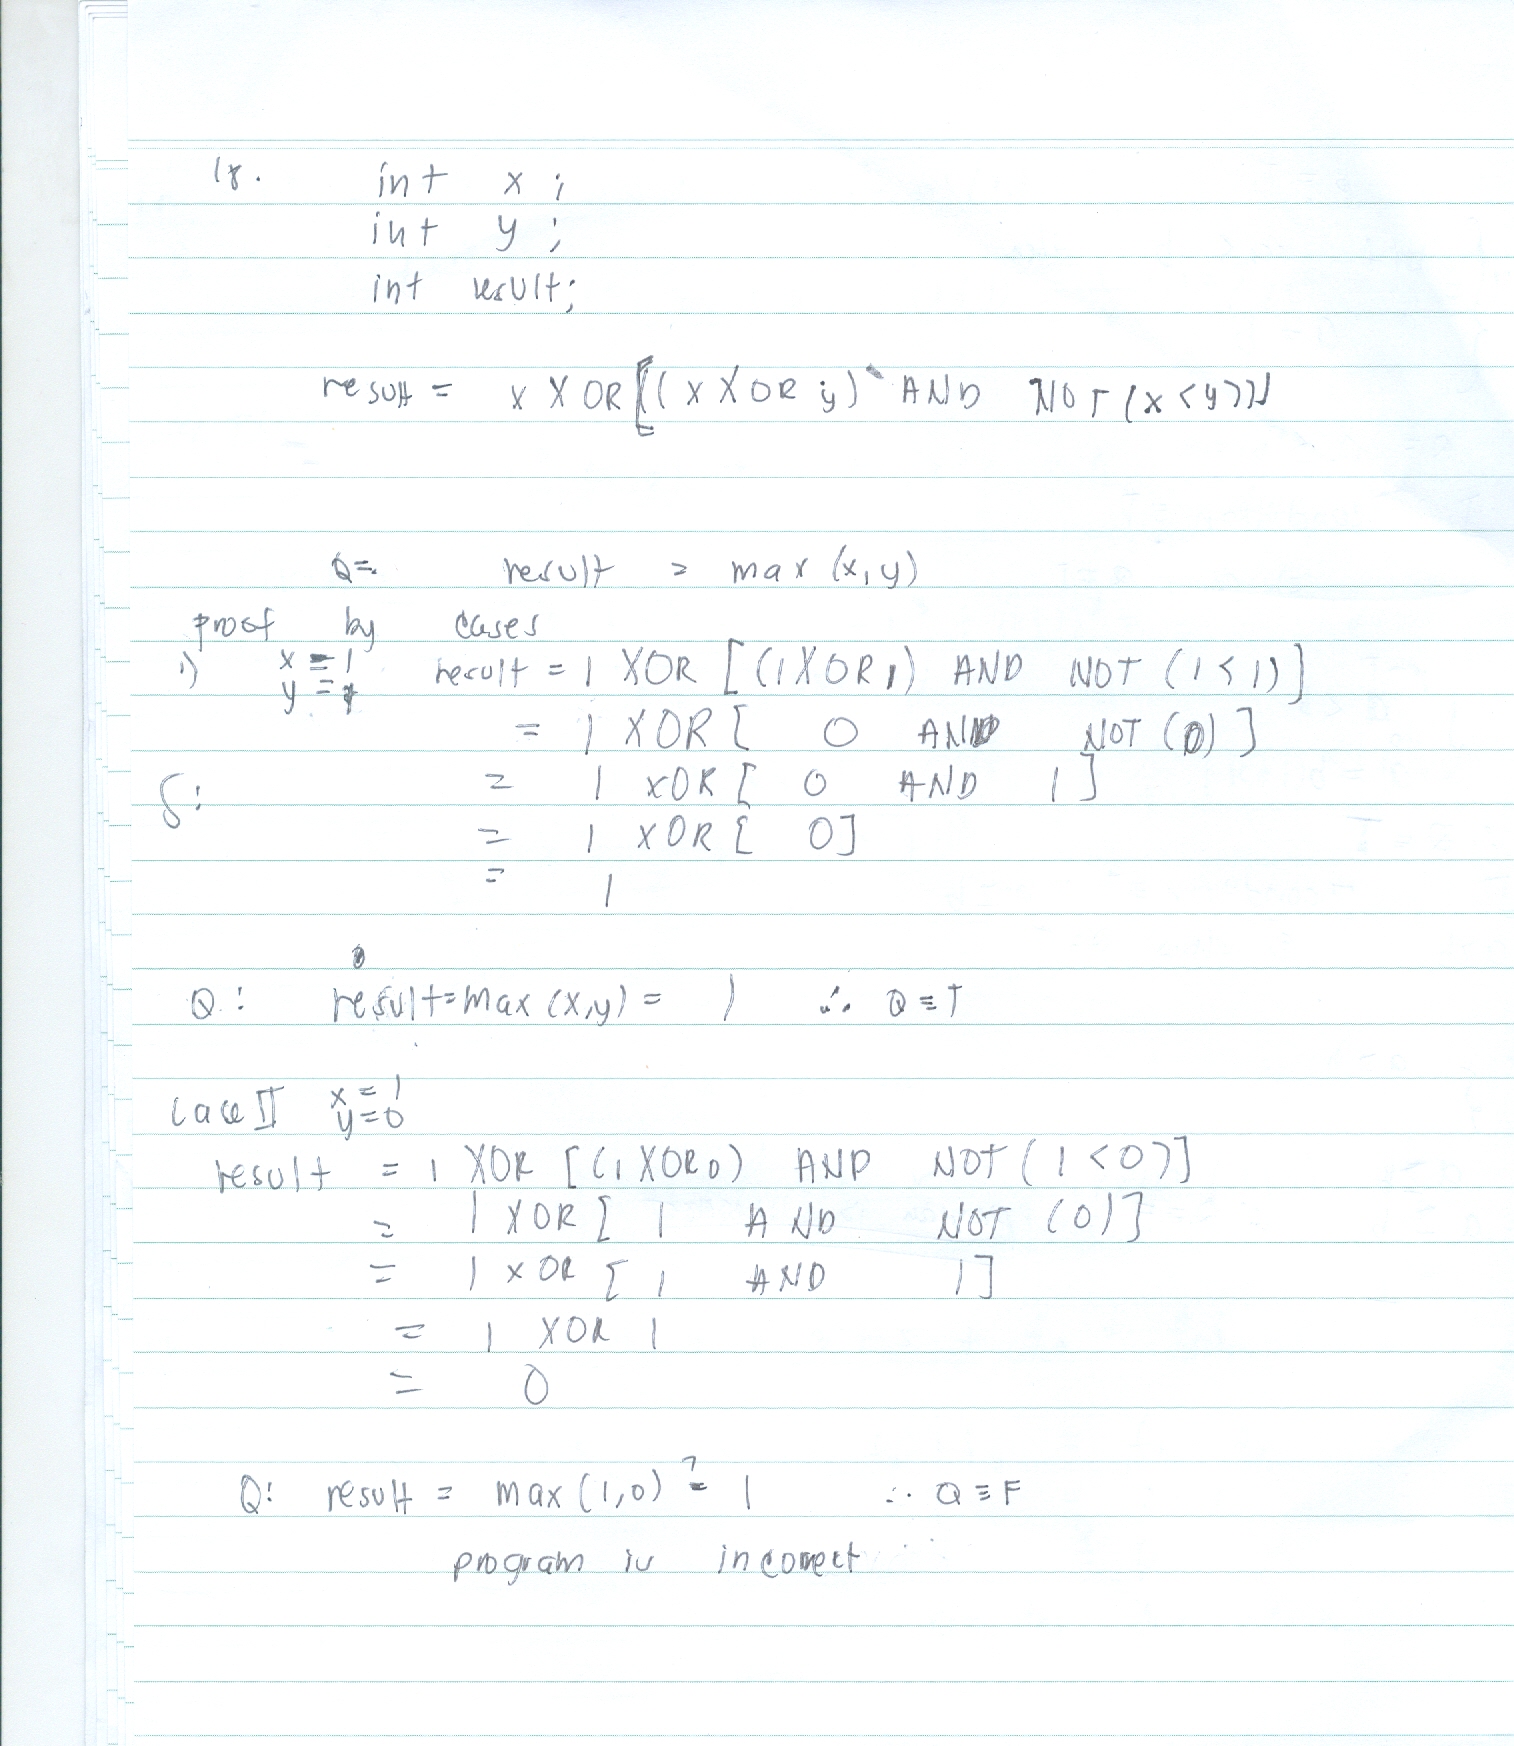 18. int x ;
int y ;
int result;
result = x XOR [(x XOR y) AND NOT (x < y)]
Q = result = max (x, y)
proof by cases
1) x = 1 result = 1 XOR [(1 XOR 1) AND NOT (1 < 1)]
y = 1
= 1 XOR [ 0 AND NOT (0) ]
S: = 1 XOR [ 0 AND 1 ]
= 1 XOR [ 0]
= 1
Q: result = max (x,y) = 1 ∴ Q ≡ T
Case II x = 1
y = 0
result = 1 XOR [(1 XOR 0) AND NOT ( 1 < 0)]
= 1 XOR [ 1 AND NOT (0)]
= 1 XOR [ 1 AND 1]
= 1 XOR 1
= 0
Q: result = max (1,0) ?= 1 ∴ Q ≡ F
program is incorrect